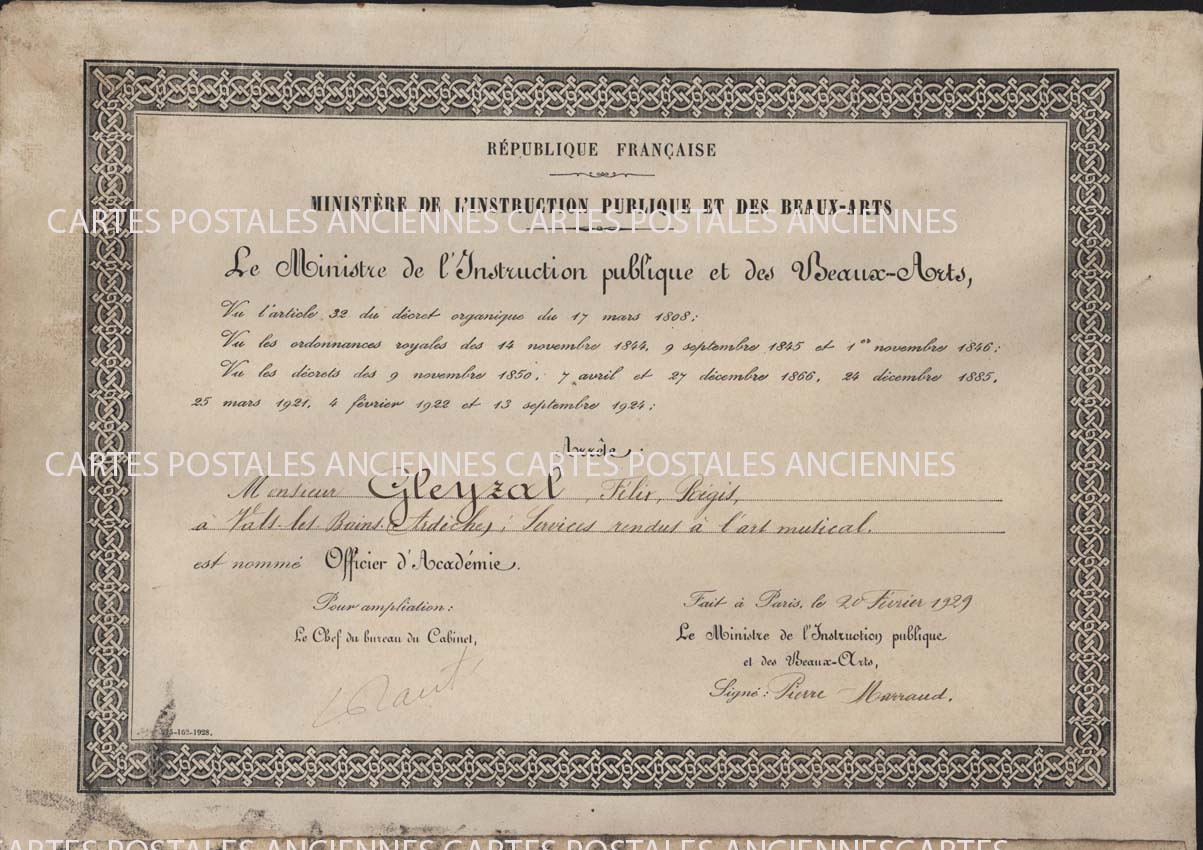 RÉPUBLIQUE FRANÇAISE
MINISTÈRE DE L'INSTRUCTION PUBLIQUE ET DES BEAUX-ARTS
CARTES POSTALES ANCIENNES CARTES POSTALES ANCIENNES
Le Ministre de l'Instruction publique et des Beaux-Arts,
Vu l'article 32 du décret organique du 17 mars 1808;
Vu les ordonnances royales des 14 novembre 1844, 9 septembre 1845 et 1er novembre 1846;
Vu les décrets des 9 novembre 1850, 7 avril et 27 décembre 1866, 24 décembre 1885,
25 mars 1921, 4 février 1922 et 13 septembre 1924;
Arrête :
CARTES POSTALES ANCIENNES CARTES POSTALES ANCIENNES
Monsieur Gleyzal, Félix, Régis,
à Vals-les-Bains (Ardèche); Services rendus à l'art musical.
est nommé Officier d'Académie.
Pour ampliation :
Le Chef du bureau du Cabinet,
Fait à Paris, le 20 Février 1929
Le Ministre de l'Instruction publique
et des Beaux-Arts,
Signé : Pierre Marraud.
-162-1928.
CARTES POSTALES ANCIENNES CARTES POSTALES ANCIENNESCARTES